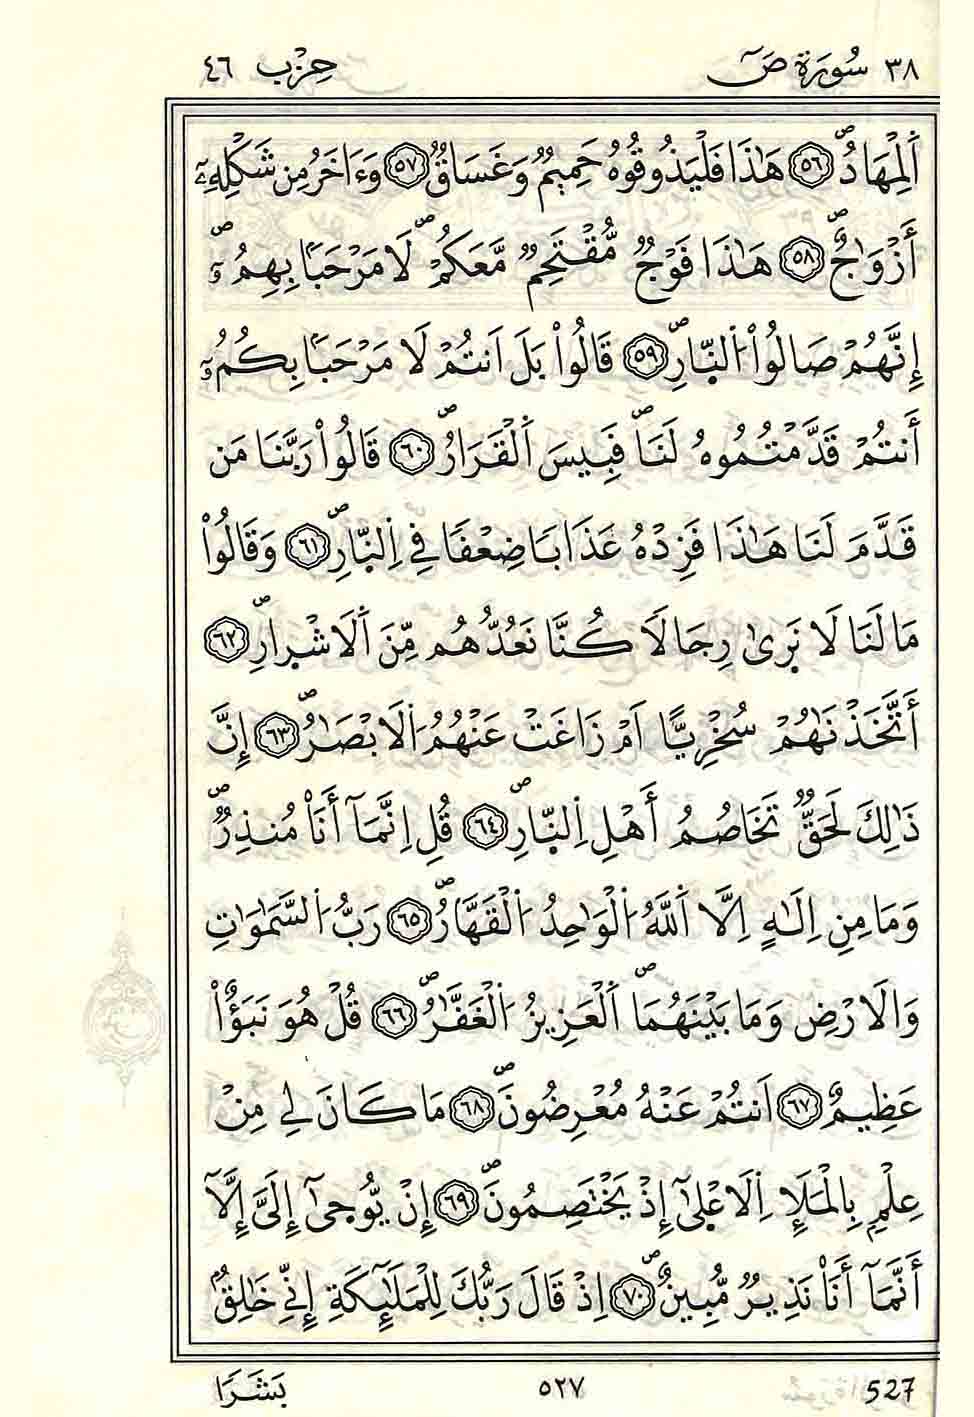 ٣٨ سُورَةُ صَٓ حِزْب ٤٦
اَ۬لْمِهَادُۖ ٥٦ هَٰذَا فَلْيَذُوقُوهُ حَمِيمٌ وَغَسَاقٌ ٥٧ وَءَاخَرُ مِن شَكْلِهِۦٓ
أَزْوَٰجٌۖ ٥٨ هَٰذَا فَوْجٞ مُّقْتَحِمٞ مَّعَكُمْۖ لَا مَرْحَباَۢ بِهِمُۥٓۖ
إِنَّهُمْ صَالُواْ اُ۬لنّ۪ارِۖ ٥٩ قَالُواْ بَلَ اَنتُمْ لَا مَرْحَباَۢ بِكُمُۥٓ
أَنتُمْ قَدَّمْتُمُوهُ لَنَاۖ فَبِيسَ اَ۬لْقَرَارُۖ ٦٠ قَالُواْ رَبَّنَا مَن
قَدَّمَ لَنَا هَٰذَا فَزِدْهُ عَذَاباٗ ضِعْفاٗ فِي اِ۬لنّ۪ارِۖ ٦١ وَقَالُواْ
مَا لَنَا لَا نَر۪ىٰ رِجَالاٗ كُنَّا نَعُدُّهُم مِّنَ اَ۬لَاشْر۪ارِۖ ٦٢
أَتَّخَذْنَٰهُمْ سُخْرِيّاً اَمْ زَاغَتْ عَنْهُمُ اُ۬لَابْصَٰرُۖ ٦٣ إِنَّ
ذَٰلِكَ لَحَقّٞ تَخَاصُمُ أَهْلِ اِ۬لنّ۪ارِۖ ٦٤ قُلِ اِنَّمَآ أَنَا۠ مُنذِرٞۖ
وَمَا مِنِ اِلَٰهٍ اِلَّا اَ۬للَّهُ اُ۬لْوَٰحِدُ اُ۬لْقَهَّارُۖ ٦٥ رَبُّ اُ۬لسَّمَٰوَٰتِ
وَالَارْضِ وَمَا بَيْنَهُمَا اَ۬لْعَزِيزُ اُ۬لْغَفَّٰرُۖ ٦٦ قُلْ هُوَ نَبَؤٌاْ
عَظِيمٌ ٦٧ اَنتُمْ عَنْهُ مُعْرِضُونَۖ ٦٨ مَا كَانَ لِي مِنْ
عِلْمِۢ بِالْمَلَإِ اِ۬لَاعْل۪ىٰٓ إِذْ يَخْتَصِمُونَۖ ٦٩ إِنْ يُّوح۪ىٰٓ إِلَيَّ إِلَّآ
أَنَّمَآ أَنَا۠ نَذِيرٞ مُّبِينٌۖ ٧٠ اِذْ قَالَ رَبُّكَ لِلْمَلَٰٓئِكَةِ إِنِّي خَٰلِقُۢ
بَشَراٗ ٥٢٧ 527